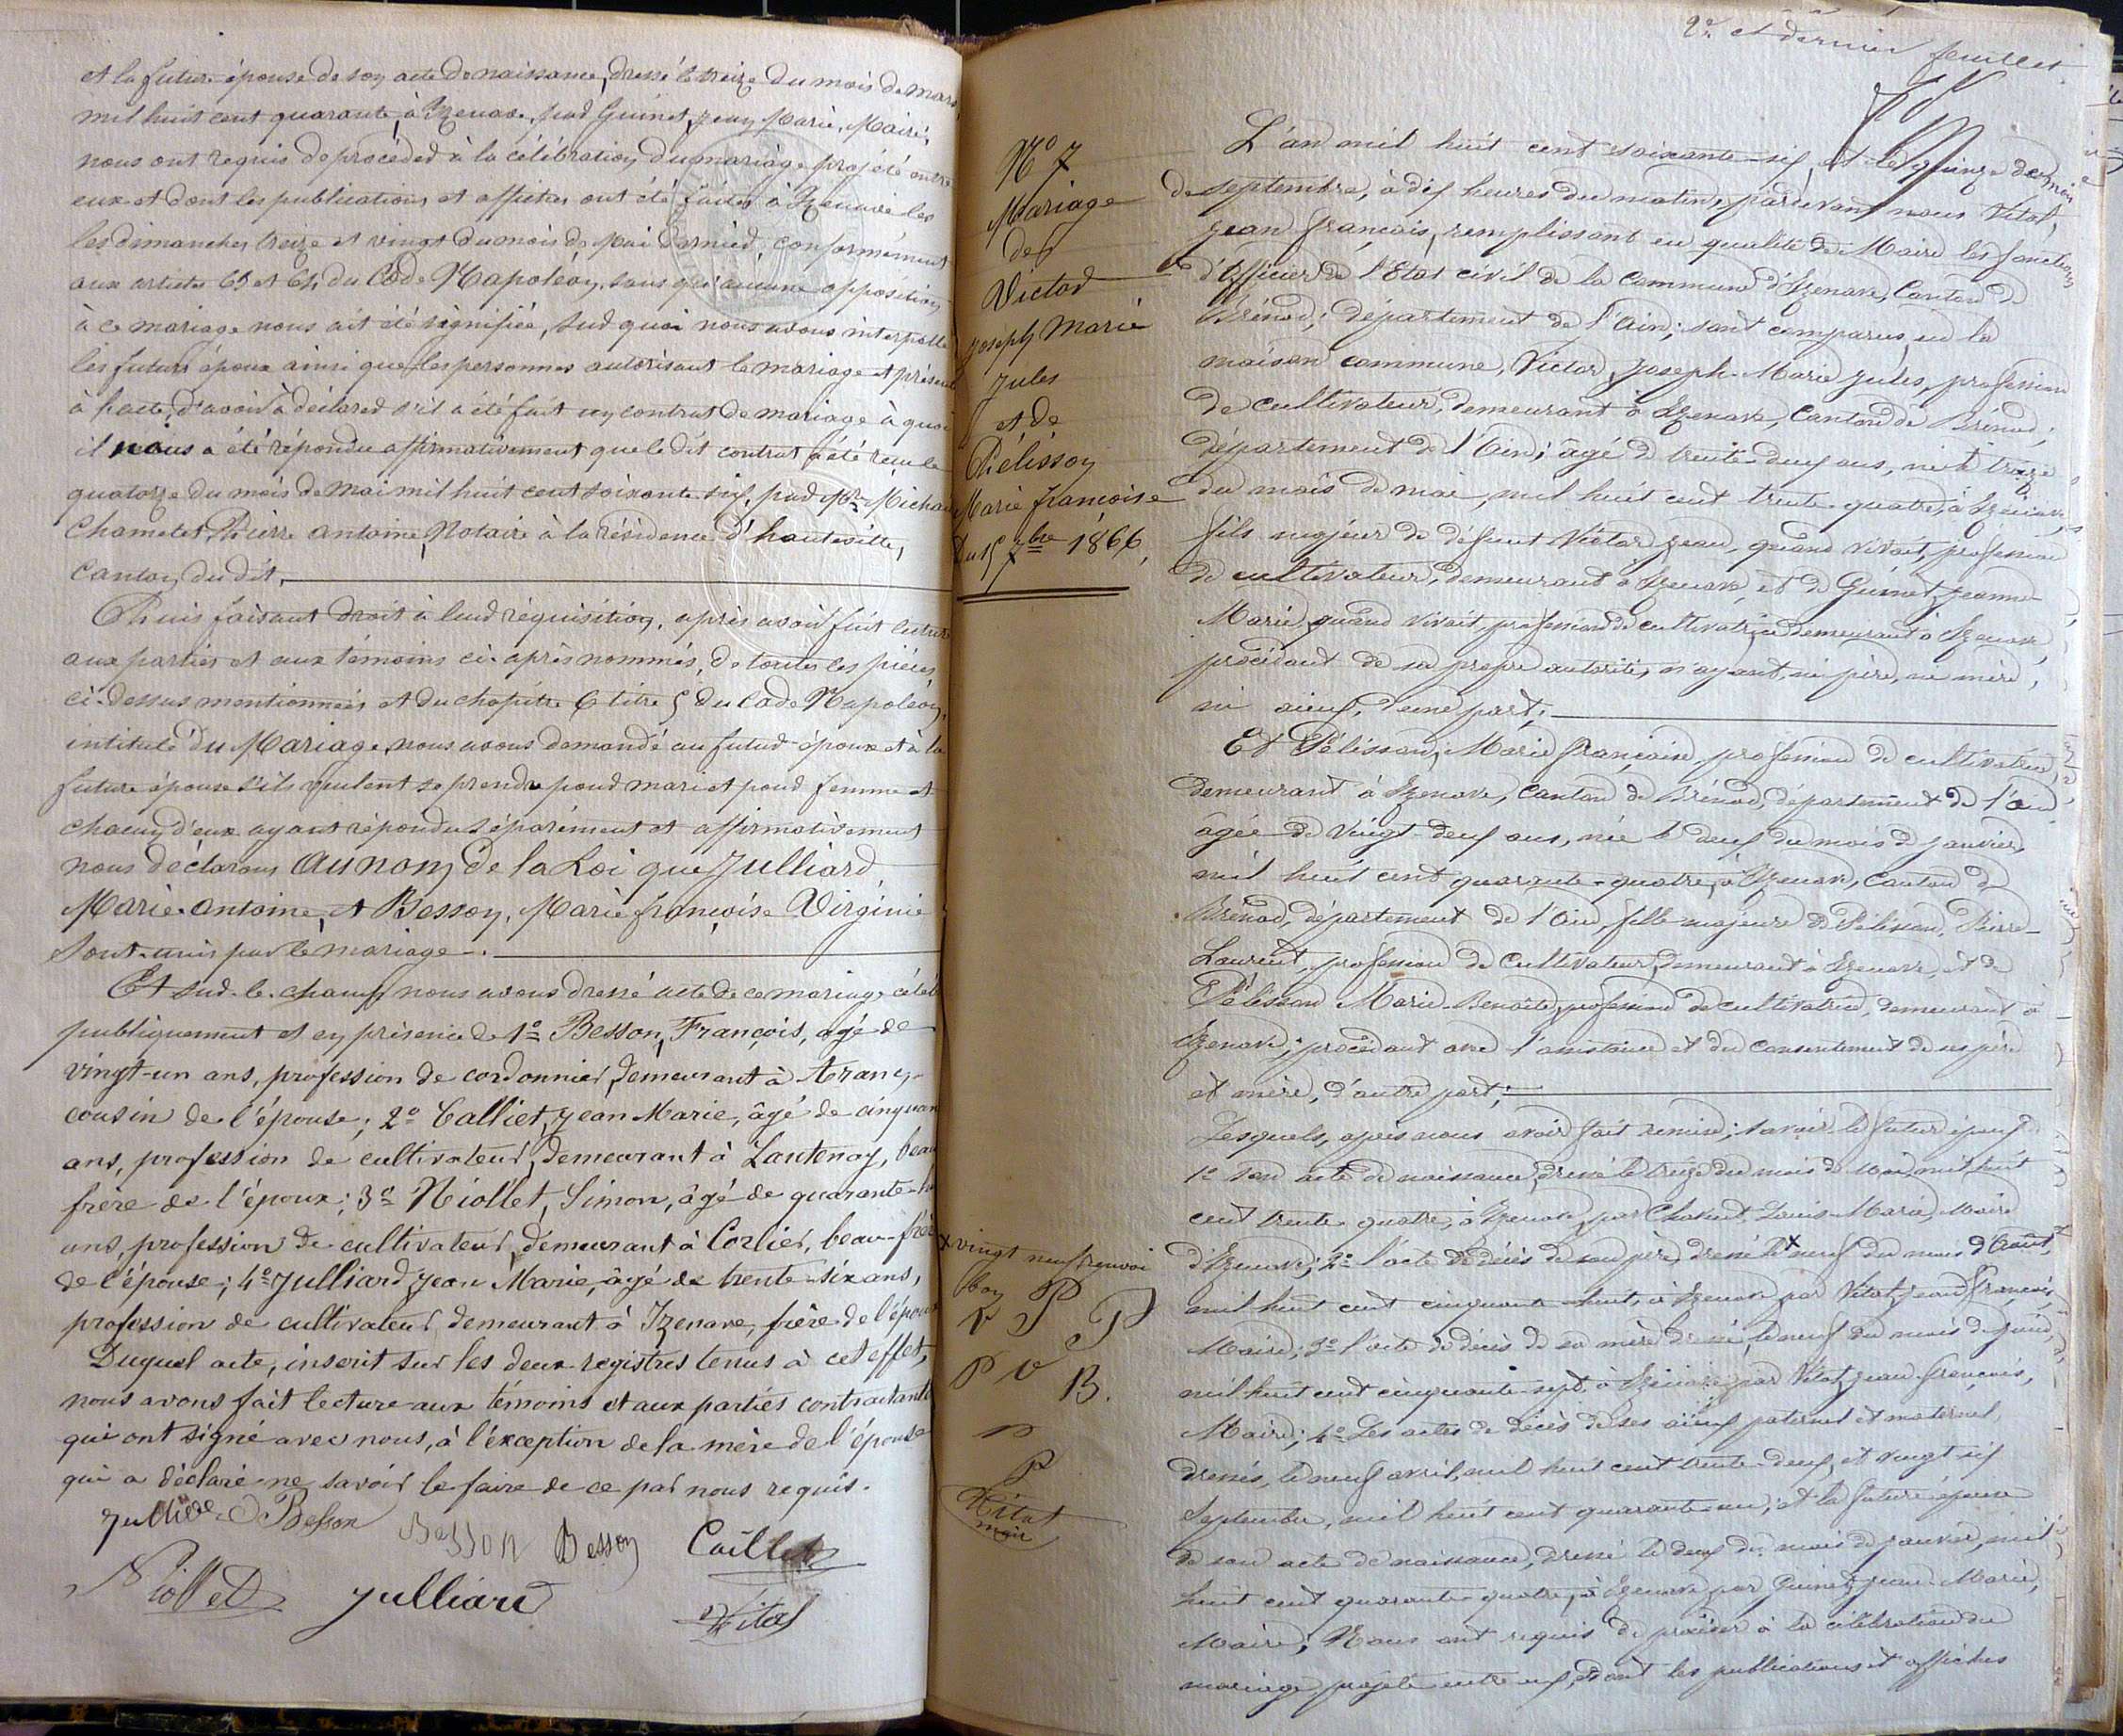 et la future épouse de son acte de naissance, dressé le treize du mois de mars
mil huit cent quarante, à Izenave, par Guinet, Jean Marie, Maire,
nous ont requis de procéder à la célébration du mariage projeté entre
eux et dont les publications et affiches ont été faites à Izenave les
les dimanches treize et vingt du mois de Mai dernier, conformément
aux articles 63 et 64 du Code Napoléon, sans qu'aucune opposition
à ce mariage nous ait été signifiée, sur quoi nous avons interpellé
les futurs époux ainsi que les personnes autorisant le mariage et présent
à l'acte, d'avoir à déclarer s'il a été fait un contrat de mariage à quoi
il nous a été répondu affirmativement que le dit contrat a été reçu le
quatorze du mois de Mai mil huit cent soixante six, par Me Michau
Chamelet, Pierre Antoine, Notaire à la résidence d'hauteville,
canton du dit,
Puis faisant droit à leur réquisition, après avoir fait lecture
aux parties et aux témoins ci-après nommés, de toutes les pièces
ci-dessus mentionnées et du chapitre 6 titre 5 du Code Napoléon,
intitulé du Mariage, nous avons demandé au futur époux et à la
future épouse s'ils veulent se prendre pour mari et pour femme et
chacun d'eux ayant répondu séparément et affirmativement
nous déclarons au nom de la Loi que Julliard
Marie-Antoine, et Besson, Marie françoise Virginie
sont unis par le mariage.
Et sur-le-champ nous avons dressé acte de ce mariage célé
publiquement et en présence de 1º Besson, François, agé de
vingt-un ans, profession de cordonnier, demeurant à Aranc,
cousin de l'épouse; 2º Calliet, Jean Marie, âgé de cinquan
ans, profession de cultivateur, demeurant à Lantenay, beau
frère de l'époux; 3º Niollet, Simon, âgé de quarante-h
ans, profession de cultivateur, demeurant à Corlier, beau-frèr
de l'épouse; 4º Julliard Jean Marie, âgé de trente-six ans,
profession de cultivateur, demeurant à Izenave, frère de l'épou
Duquel acte, inscrit sur les deux registres tenus à cet effet,
nous avons fait lecture aux témoins et aux parties contractant
qui ont signé avec nous, à l'exception de la mère de l'épouse
qui a déclaré ne savoir le faire de ce par nous requis.
Besson Besson Besson Caillet
Niollet Julliard Vital
2e et dernier feuillet
Nº 7
Mariage
de
Victor
Joseph Marie
Jules
et de
Pélisson
Marie françoise
Du 15 7bre 1866,
L'an mil huit cent soixante-six, et le quinze du mois
de septembre, à dix heures du matin, pardevant nous Vital,
Jean françois, remplissant en qualité de Maire les fonctions
d'Officier de l'Etat civil de la Commune d'Izenave, Canton de
Brénod, département de l'Ain; sont comparus, en la
maison commune, Victor, Joseph-Marie Jules, profession
de cultivateur, demeurant à Izenave, Canton de Brénod,
département de l'Ain; âgé de trente-deux ans, né le treize
du mois de mai, mil huit cent trente-quatre, à Izenave,
fils majeur de défunt Victor Jean, quand vivait, profession
de cultivateur, demeurant à Izenave et de Guinet, Jeanne-
Marie, quand vivait, profession de cultivatrice demeurant à Izenave,
procédant de sa propre autorité, n'ayant, ni père, ni mère,
ni aieux, d'une part;
Et Pélisson, Marie françoise, profession de cultivatrice,
demeurant à Izenave, Canton de Brénod, département de l'Ain
âgée de vingt-deux ans, née le deux du mois de janvier,
mil huit cent quarante-quatre, à Izenave, Canton de
Brénod, département de l'Ain, fille majeure de Pélisson, Pierre-
Laurent, profession de cultivateur, demeurant à Izenave, et de
Pélisson Marie-Benoîte, profession de cultivatrice, demeurant à
Izenave; procédant avec l'assistance et du consentement de ses père
et mère, d'autre part;
Lesquels, après nous avoir fait remise; savoir le futur époux
1º son acte de naissance, dressé le treize du mois de mai mil huit
cent trente-quatre, à Izenave, par Chabert, Louis-Marie, Maire
d'Izenave; 2º l'acte de décès de son père, dressé le x neuf du mois d'Août,
mil huit cent cinquante-huit, à Izenave par Vital, Jean François,
Maire; 3º l'acte de décès de sa mère dressé, le neuf du mois de juin,
mil huit cent cinquante-sept, à Izenave par Vital, Jean-françois,
Maire; 4º Les actes de décès de ses aïeux paternel et maternel,
dressés, le neuf avril, mil huit cent trente-deux, et vingt-six
Septembre, mil huit cent quarante-un; et la future épouse
de son acte de naissance, dressé le deux du mois de janvier, mil
huit cent quarante-quatre, à Izenave par Guinet, Jean-Marie,
Maire; Nous ont requis de procéder à la célébration du
mariage projeté entre eux, et dont les publications et affiches
x vingt neuf renvoi
bon
V P P
P V B.
P
Vital
maire